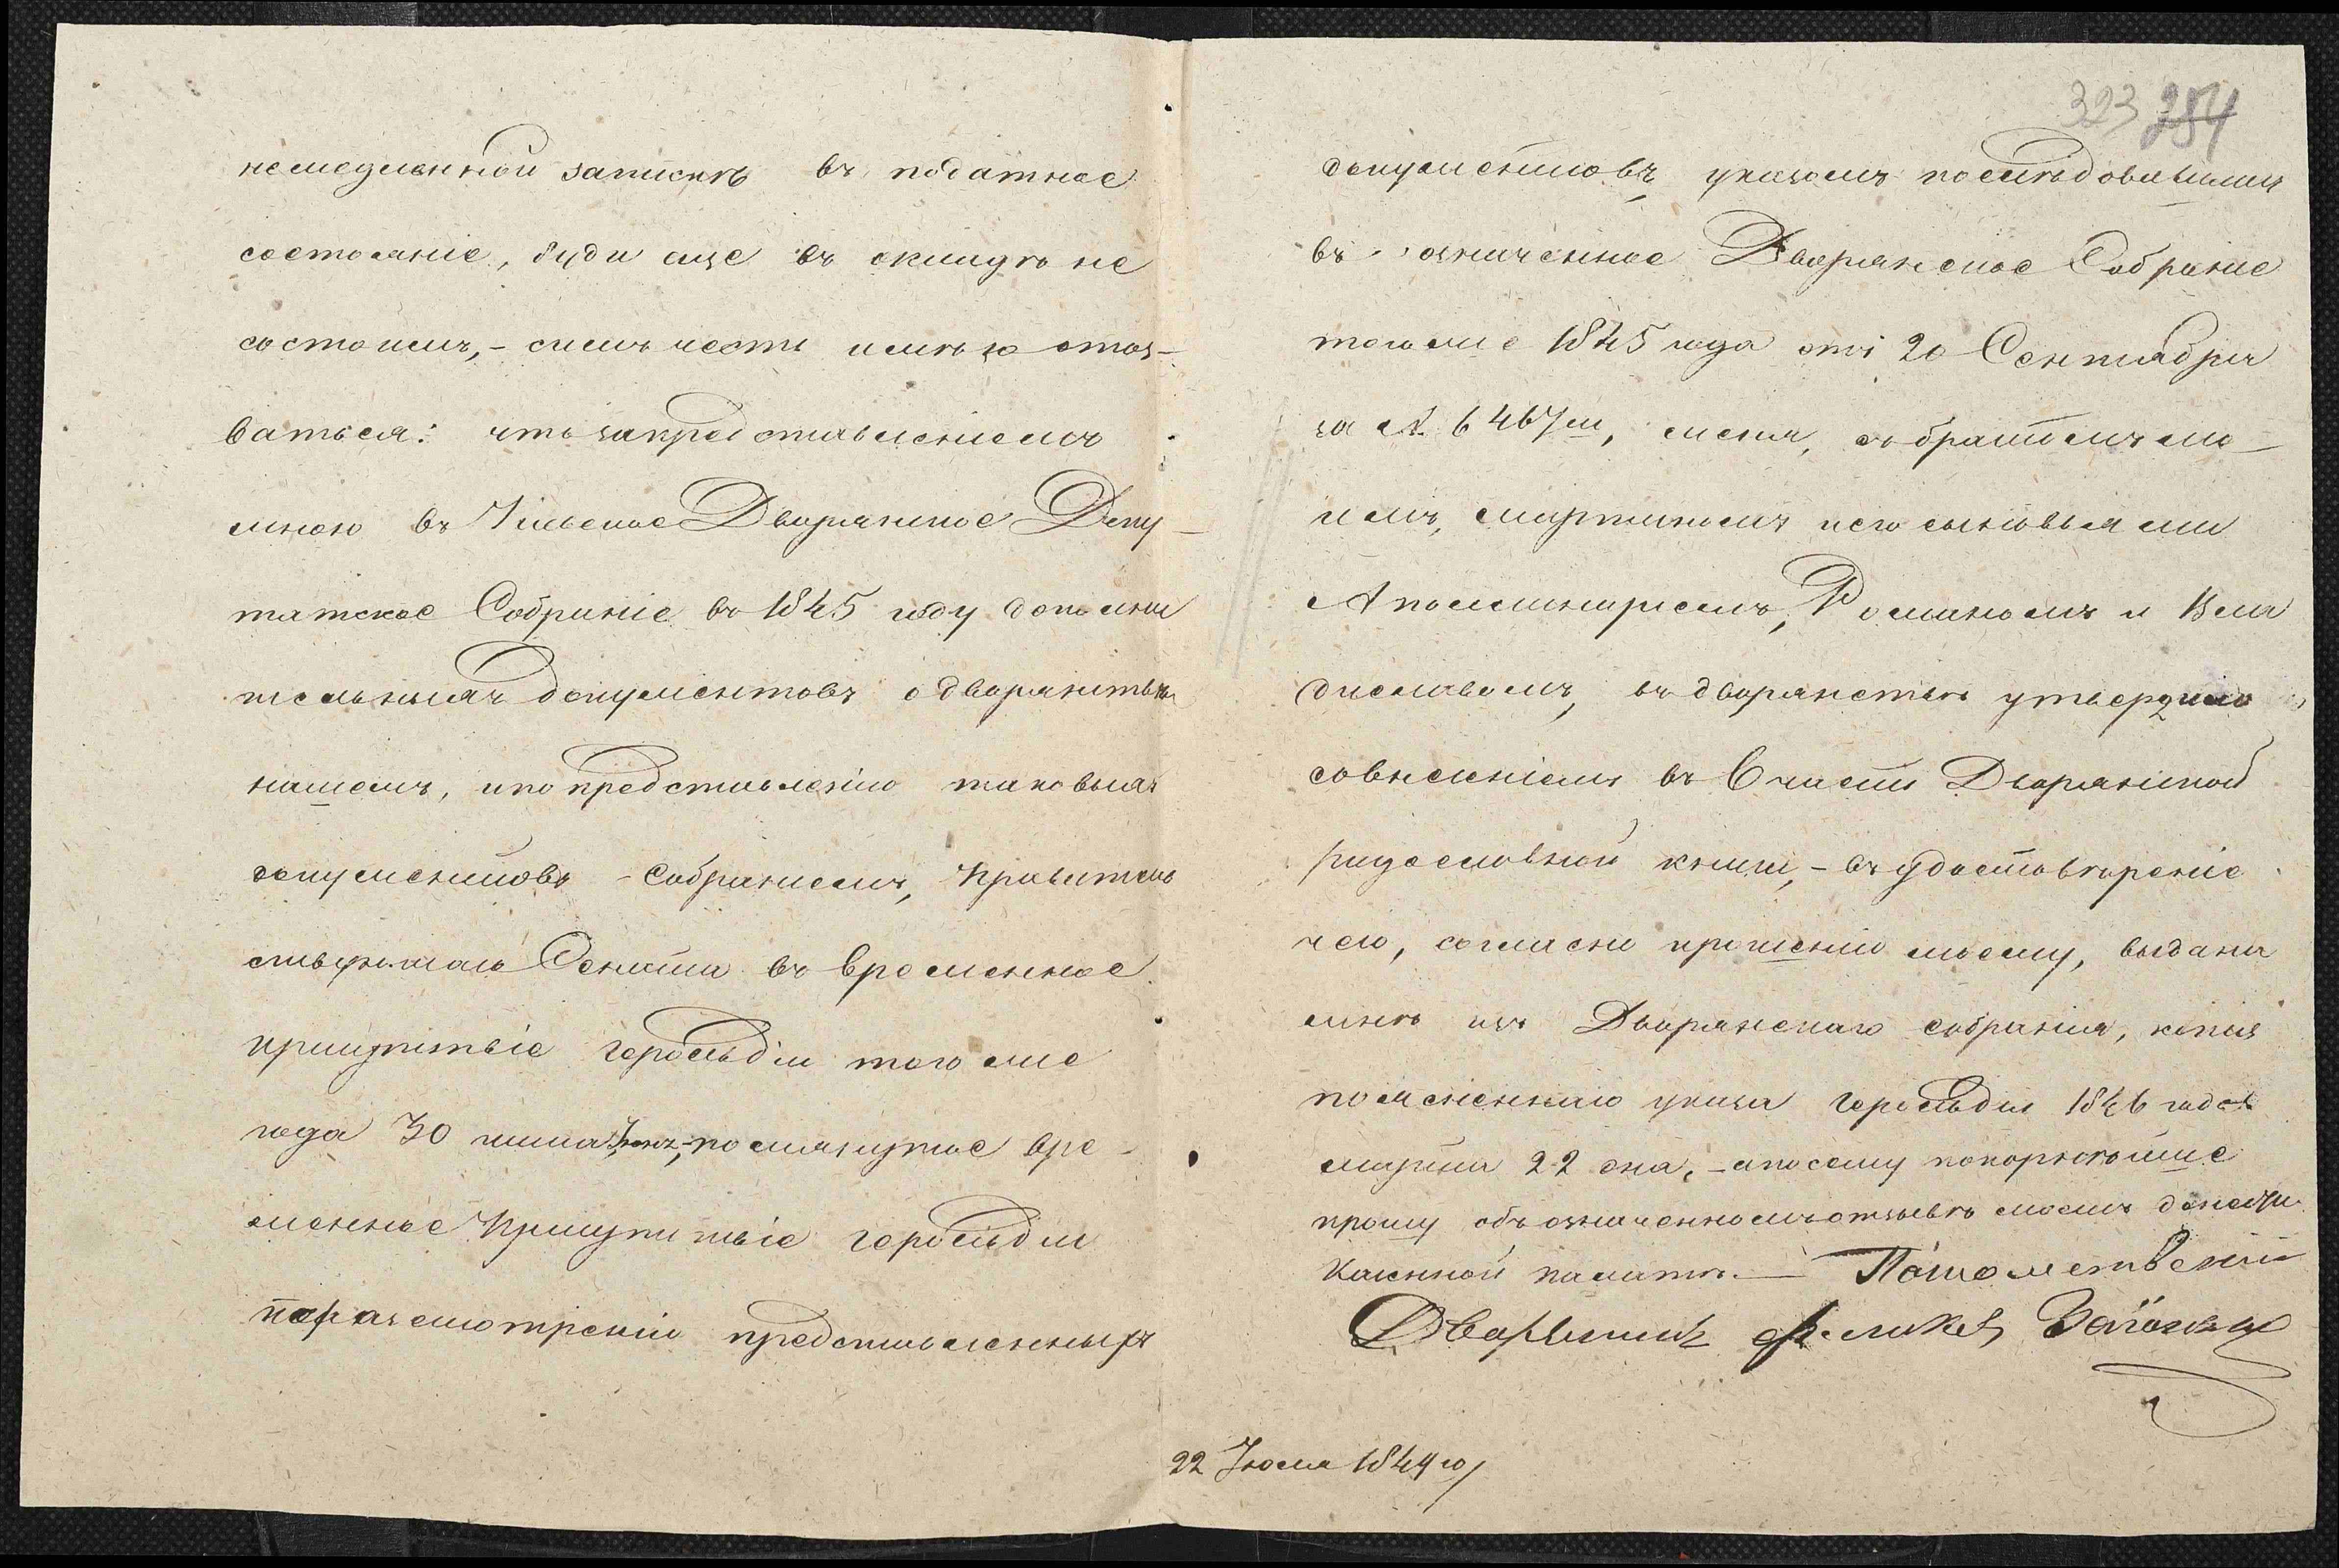 немедленной запискѣ въ податное
состояніе, буди еще въ окладѣ не
состоимъ, – симъ честь имѣю отоз-
ваться: что запредставленіемъ
мною въ Дворянское Депу-
татское Собраніе въ 1845 году дополни
тельныхъ документовъ о дворянствѣ
нашемъ, ипо представленію таковыхъ
документовъ – Собраніемъ, Правитель
ствующаго Сената въ временное
присутствіе герольдіи того же
года 30 Іюня, – помянутое вре-
менное присутствіе герольдіи
поразсмотреніи представленныхъ
323 284
документовъ, указомъ последовавшимъ
въ означенное Дворянское Собраніе
тогоже 1845 года отъ 20 Сентября
за № 6467м, меня, съ братомъ мо-
имъ, мартиномъ иего сыновьями
Аполлинаріемъ, Романомъ и Вла
диславомъ, въ дворянствѣ утвердило
совнесеніемъ въ 6 части Дворянской
родословной книги, – въ удостовѣреніе
чего, согласно прошенію моему, выдана
мнѣ изъ Дворянскаго собранія, копія
помянённаго указа герольдіи 1846 года
марта 22 дня, – апосему покорнѣйше
прошу объ означенномъ отзывѣ моемъ донести
Казенной палатѣ. — Потомственный
Дворянинъ Феликсъ
22 Іюля 1849 го